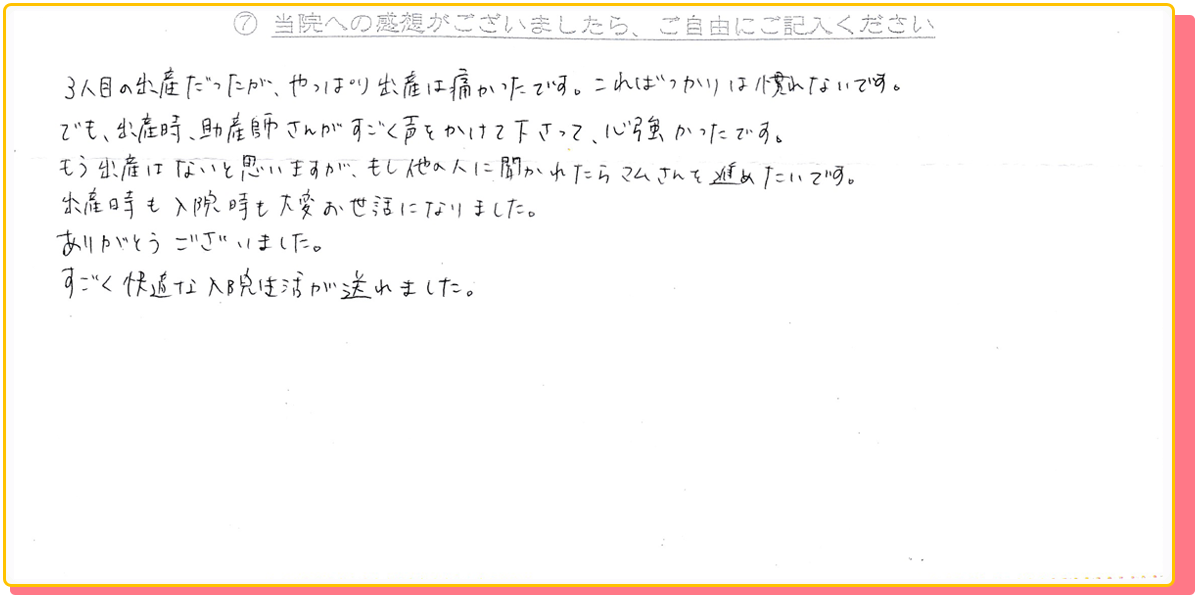 ⑦ 当院への感想がございましたら、ご自由にご記入ください
3人目の出産だったが、やっぱり出産は痛かったです。こればっかりは慣れないです。
でも、出産時、助産師さんがすごく声をかけて下さって、心強かったです。
もう出産はないと思いますが、もし他の人に聞かれたらマムさんを進めたいです。
出産時も入院時も大変お世話になりました。
ありがとうございました。
すごく快適な入院生活が送れました。